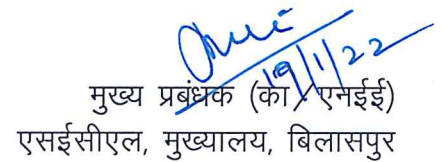 19/1/22
मुख्य प्रबंधक (का / एनईई)
एसईसीएल, मुख्यालय, बिलासपुर